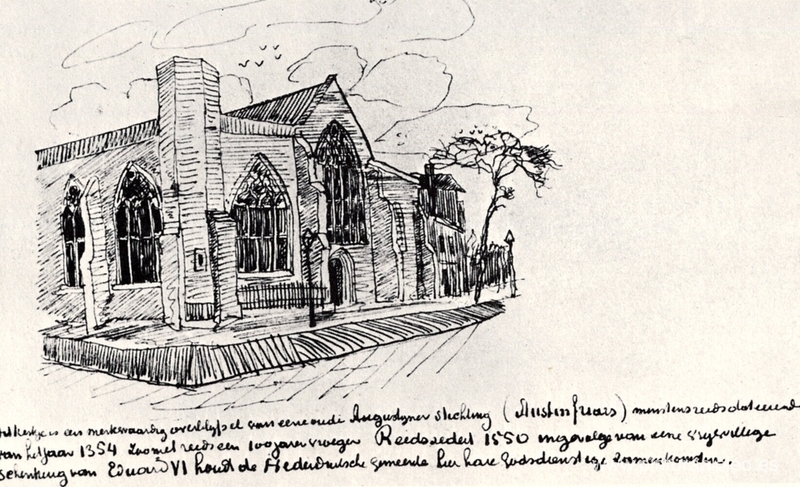 Dit kerkje is een merkwaardig overblijfsel van eene oude Augustyner stichting (Austin friars) minstens reeds dateerend
van het jaar 1354 zoo niet reeds een 100 jaren vroeger Reeds sedert 1550 ingevolge van eene vrijwillige
schenking van Eduard VI houdt de Nederduitsche gemeente hier hare Godsdienstige zamenkomsten.